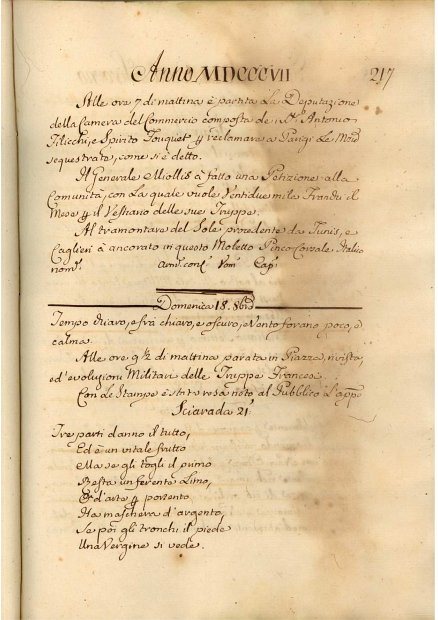 Anno MDCCCVII 217
Alle ore 7 di mattina è partita La Deputazione
della Camera del Commercio composta de' Sri. Antonio
Filicchi, e Spirito Fouquet p reclamare a Parigi Le
sequestrate, come si è detto.
Il Generale Miollis à fatto una Petizione alla
Comunità, con La quale vuole Ventidue mila Franchi il
Mese p il Vestiario delle sue Truppe.
Al tramontare del Sole procedente da Tunis, e
Caglieri à ancorato in questo Moletto Pinco Corsale Italio
nom.
Domenica 18. 8bre
Tempo chiaro, e fra chiaro, e oscuro, e Vento forano poco, e
calma.
Alle ore 9½ di mattina parata in Piazza, rivista,
ed'evoluzioni Militari delle Truppe Francesi.
Con Le Stampe è stato resa noto al Pubblico L'appo
Sciarada 21ª
Tre parti danno il tutto,
Ed è un vitale frutto
Ma se gli togli il primo
Resta un ferente Limo,
E d'arte p portento
Ha maschera d'argento,
Se poi gli tronchi il piede
Una Vergine si vede.